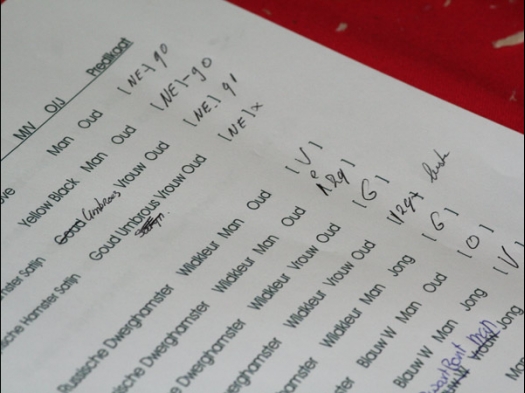 M/V O/J Predikaat
Man Oud | NE- | 90
Yellow Black Man Oud | NE | - 90
Hamster Satijn Goud Umbrous Vrouw Oud | NE- | 91
sische Hamster Satijn Goud Umbrous Vrouw Oud | NE | x
Russische Dwerghamster Wildkleur Man Oud | V |
ische Dwerghamster Wildkleur Man Oud
Dwerghamster Wildkleur Vrouw Oud | G |
werghamster Wildkleur Vrouw Oud
hamster Wildkleur Man Jong | G |
ster Blauw W Man Oud | O |
Blauw W Man Jong | V |
Vrouw Jong